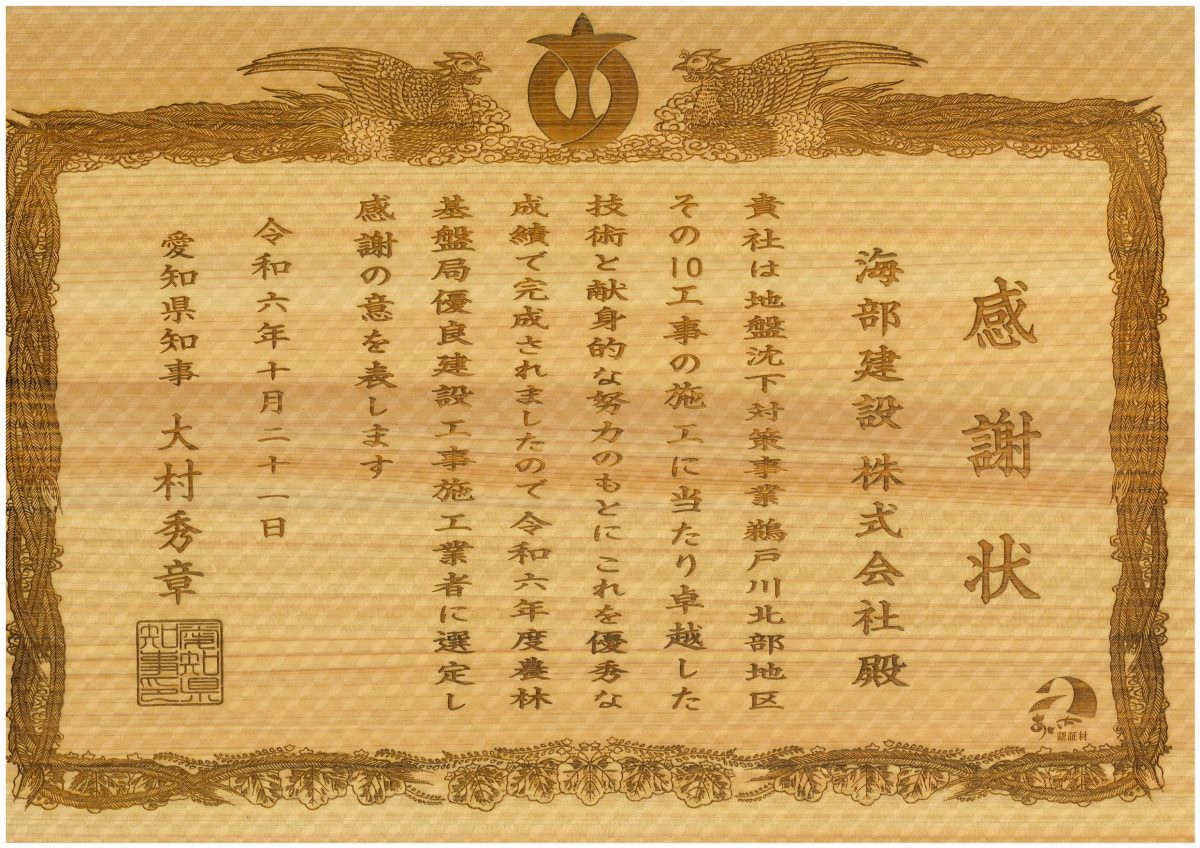 感謝状
海部建設株式会社殿
貴社は地盤沈下対策事業鵜戸川北部地区
その10工事の施工に当たり卓越した
技術と献身的な努力のもとにこれを優秀な
成績で完成されましたので令和六年度農林
基盤局優良建設工事施工業者に選定し
感謝の意を表します
令和六年十月二十一日
愛知県知事 大村秀章
愛知県
知事印
あいち
認証材